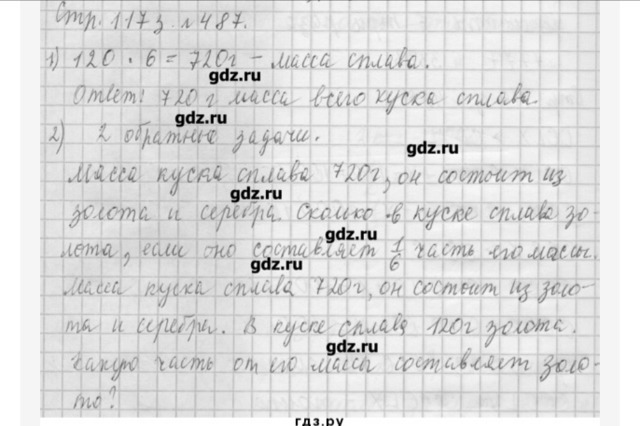 Стр. 173 №487.
1) 120 · 6 = 720г – масса сплава.
gdz.ru
Ответ: 720 г масса всего куска сплава.
gdz.ru
2) 2 обратные задачи.
gdz.ru
Масса куска сплава 720г, он состоит из
gdz.ru
золота и серебра. Сколько в куске сплава зо-
gdz.ru
лота, если оно составляет 1/6 часть его массы.
gdz.ru
Масса куска сплава 720г, он состоит из золо-
та и серебра. В куске сплава 120г золота.
gdz.ru
Какую часть от его массы составляет золо-
то?
гдз.ру